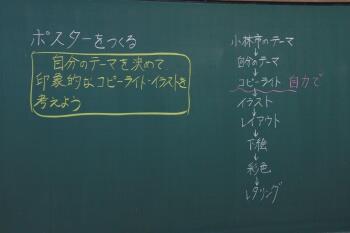 ポスターをつくる
自分のテーマを決めて
印象的なコピーライト・イラストを
考えよう
小林市のテーマ
↓
自分のテーマ
↓
コピーライト 自力で
↓
イラスト
↓
レイアウト
↓
下絵
↓
彩色
↓
レタリング